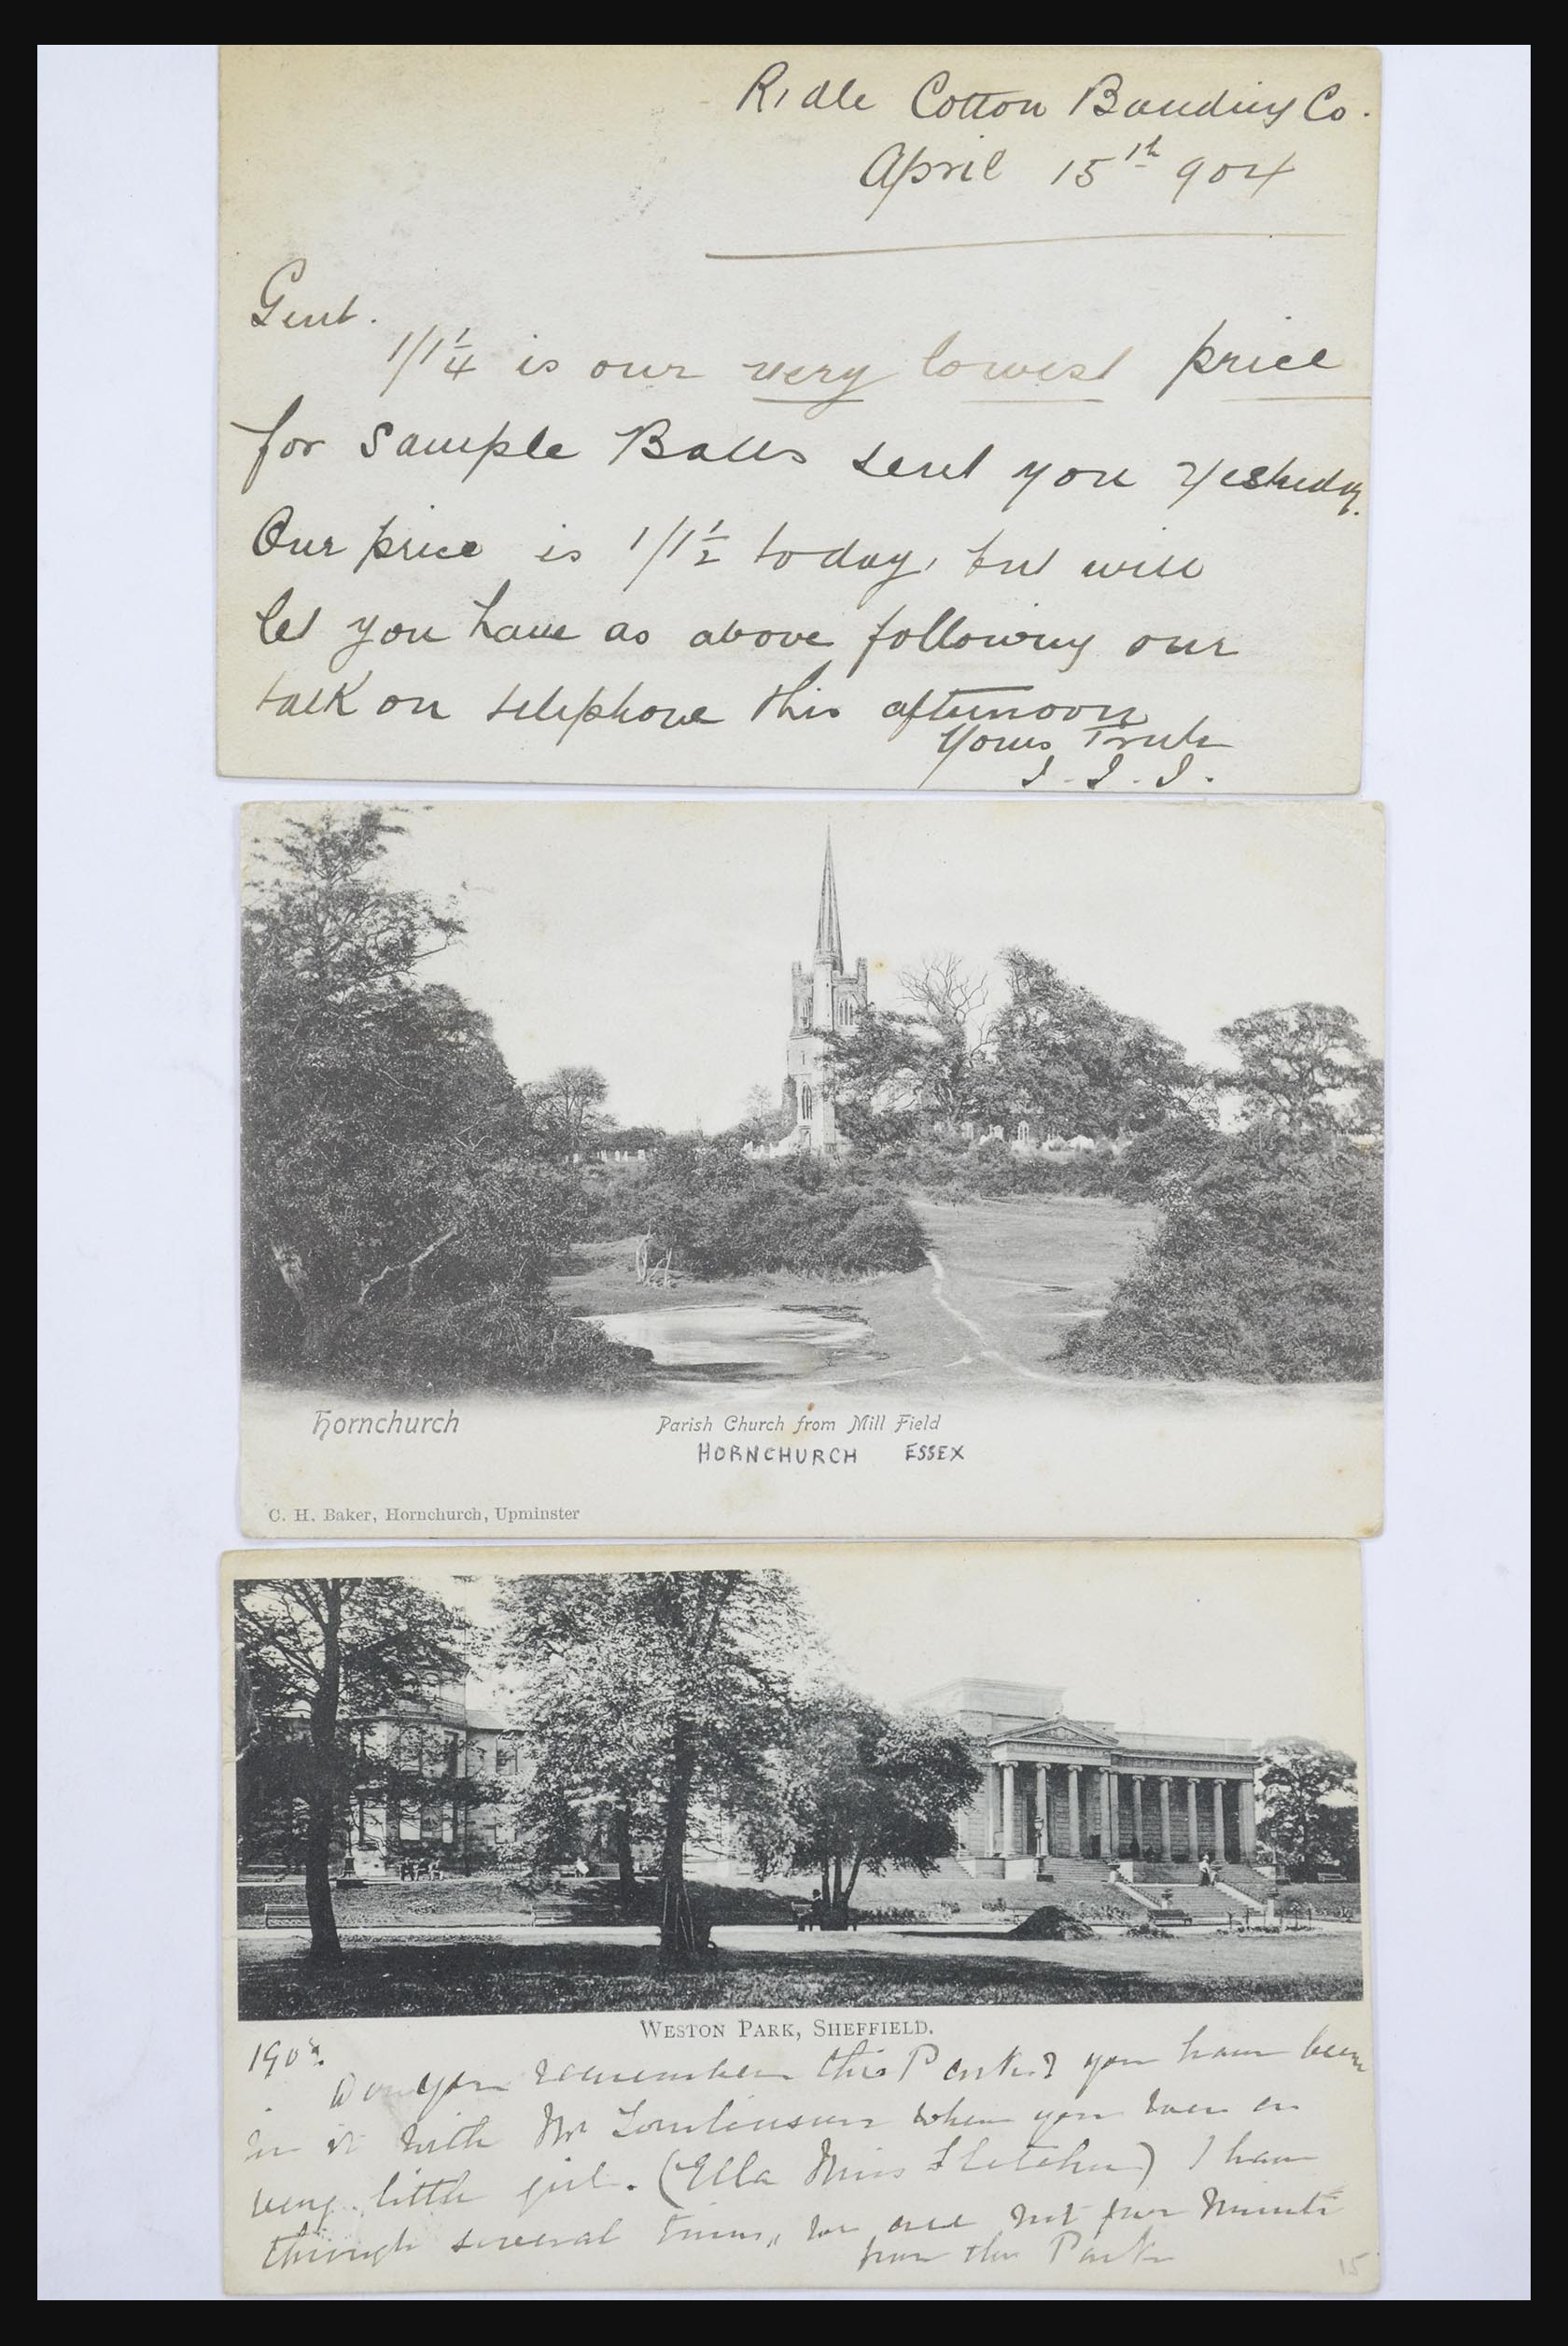 Ridle Cotton Banding Co.
April 15th 904
Gent.
1/1 1/4 is our very lowest price
for Sample Balls sent you Yesterday.
Our price is 1/1 1/2 today, but will
let you have as above following our
talk on telephone this afternoon
Yours Truly
J. J. J.
Hornchurch
Parish Church from Mill Field
HORNCHURCH ESSEX
C. H. Baker, Hornchurch, Upminster
WESTON PARK, SHEFFIELD.
190
Do you remember this Park? you have been
in it with Mr Tomlinson when you were a
very little girl. (Ella Miss Fletcher) I have
through several times, we are not five minutes
from the Park
15